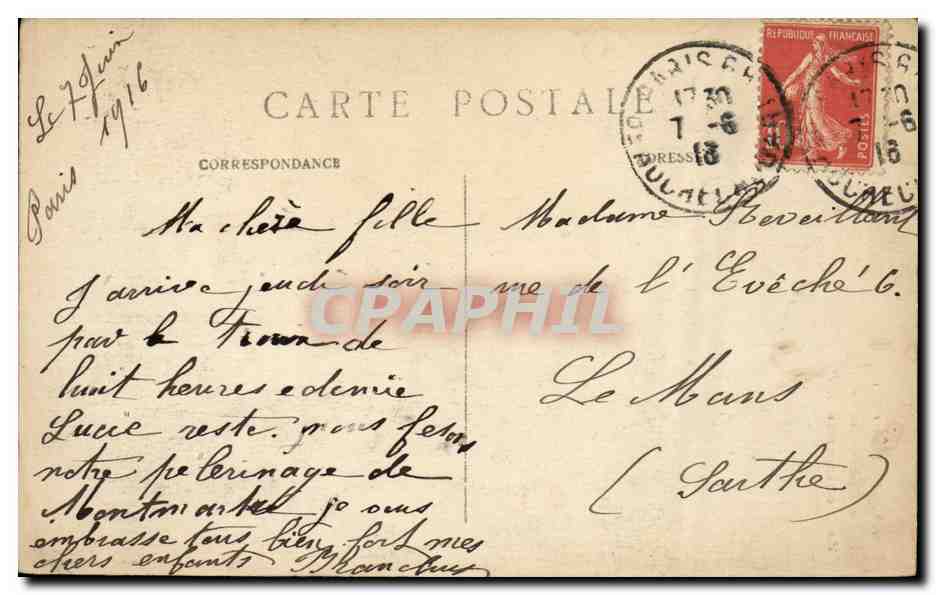 Le 7 Juin
1916
Paris
CARTE POSTALE
CORRESPONDANCE
ADRESSE
REPUBLIQUE FRANÇAISE
POSTES
PARIS
17 30
7 -6
16
ROCHECHOUART
17 30
-6
16
Ma chère fille
J'arrive jeudi soir
par le train de
huit heures e demie
Lucie reste. nous fesons
notre pelerinage de
Montmartre je vous
embrasse tous bien fort mes
chers enfants
Madame Reveillant
rue de l'Evêché 6.
Le Mans
(Sarthe)
CPAPHIL